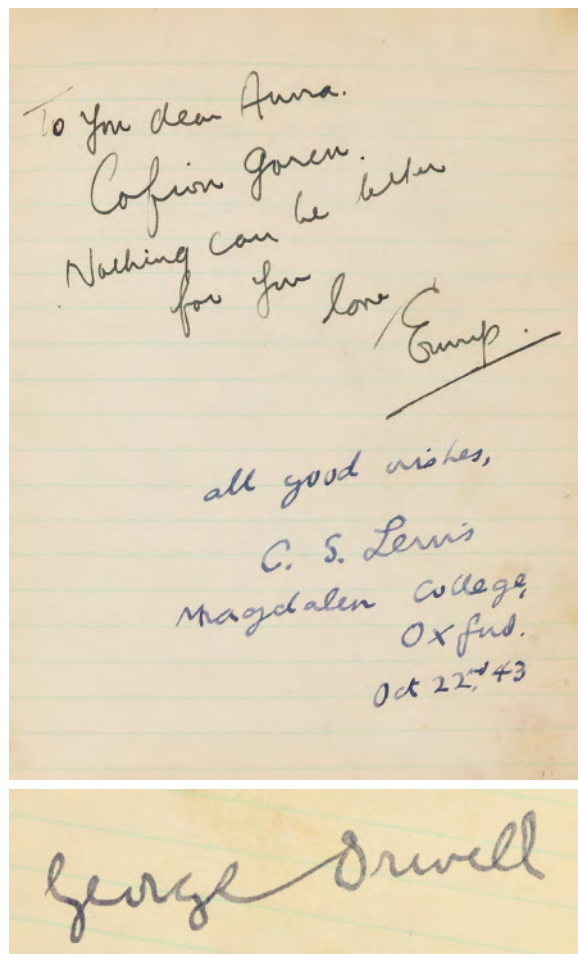 To You dear Anna.
Cofion goreu.
Nothing can be better
for You love
all good wishes,
C. S. Lewis
Magdalen College,
Oxford.
Oct 22nd, 43
George Orwell